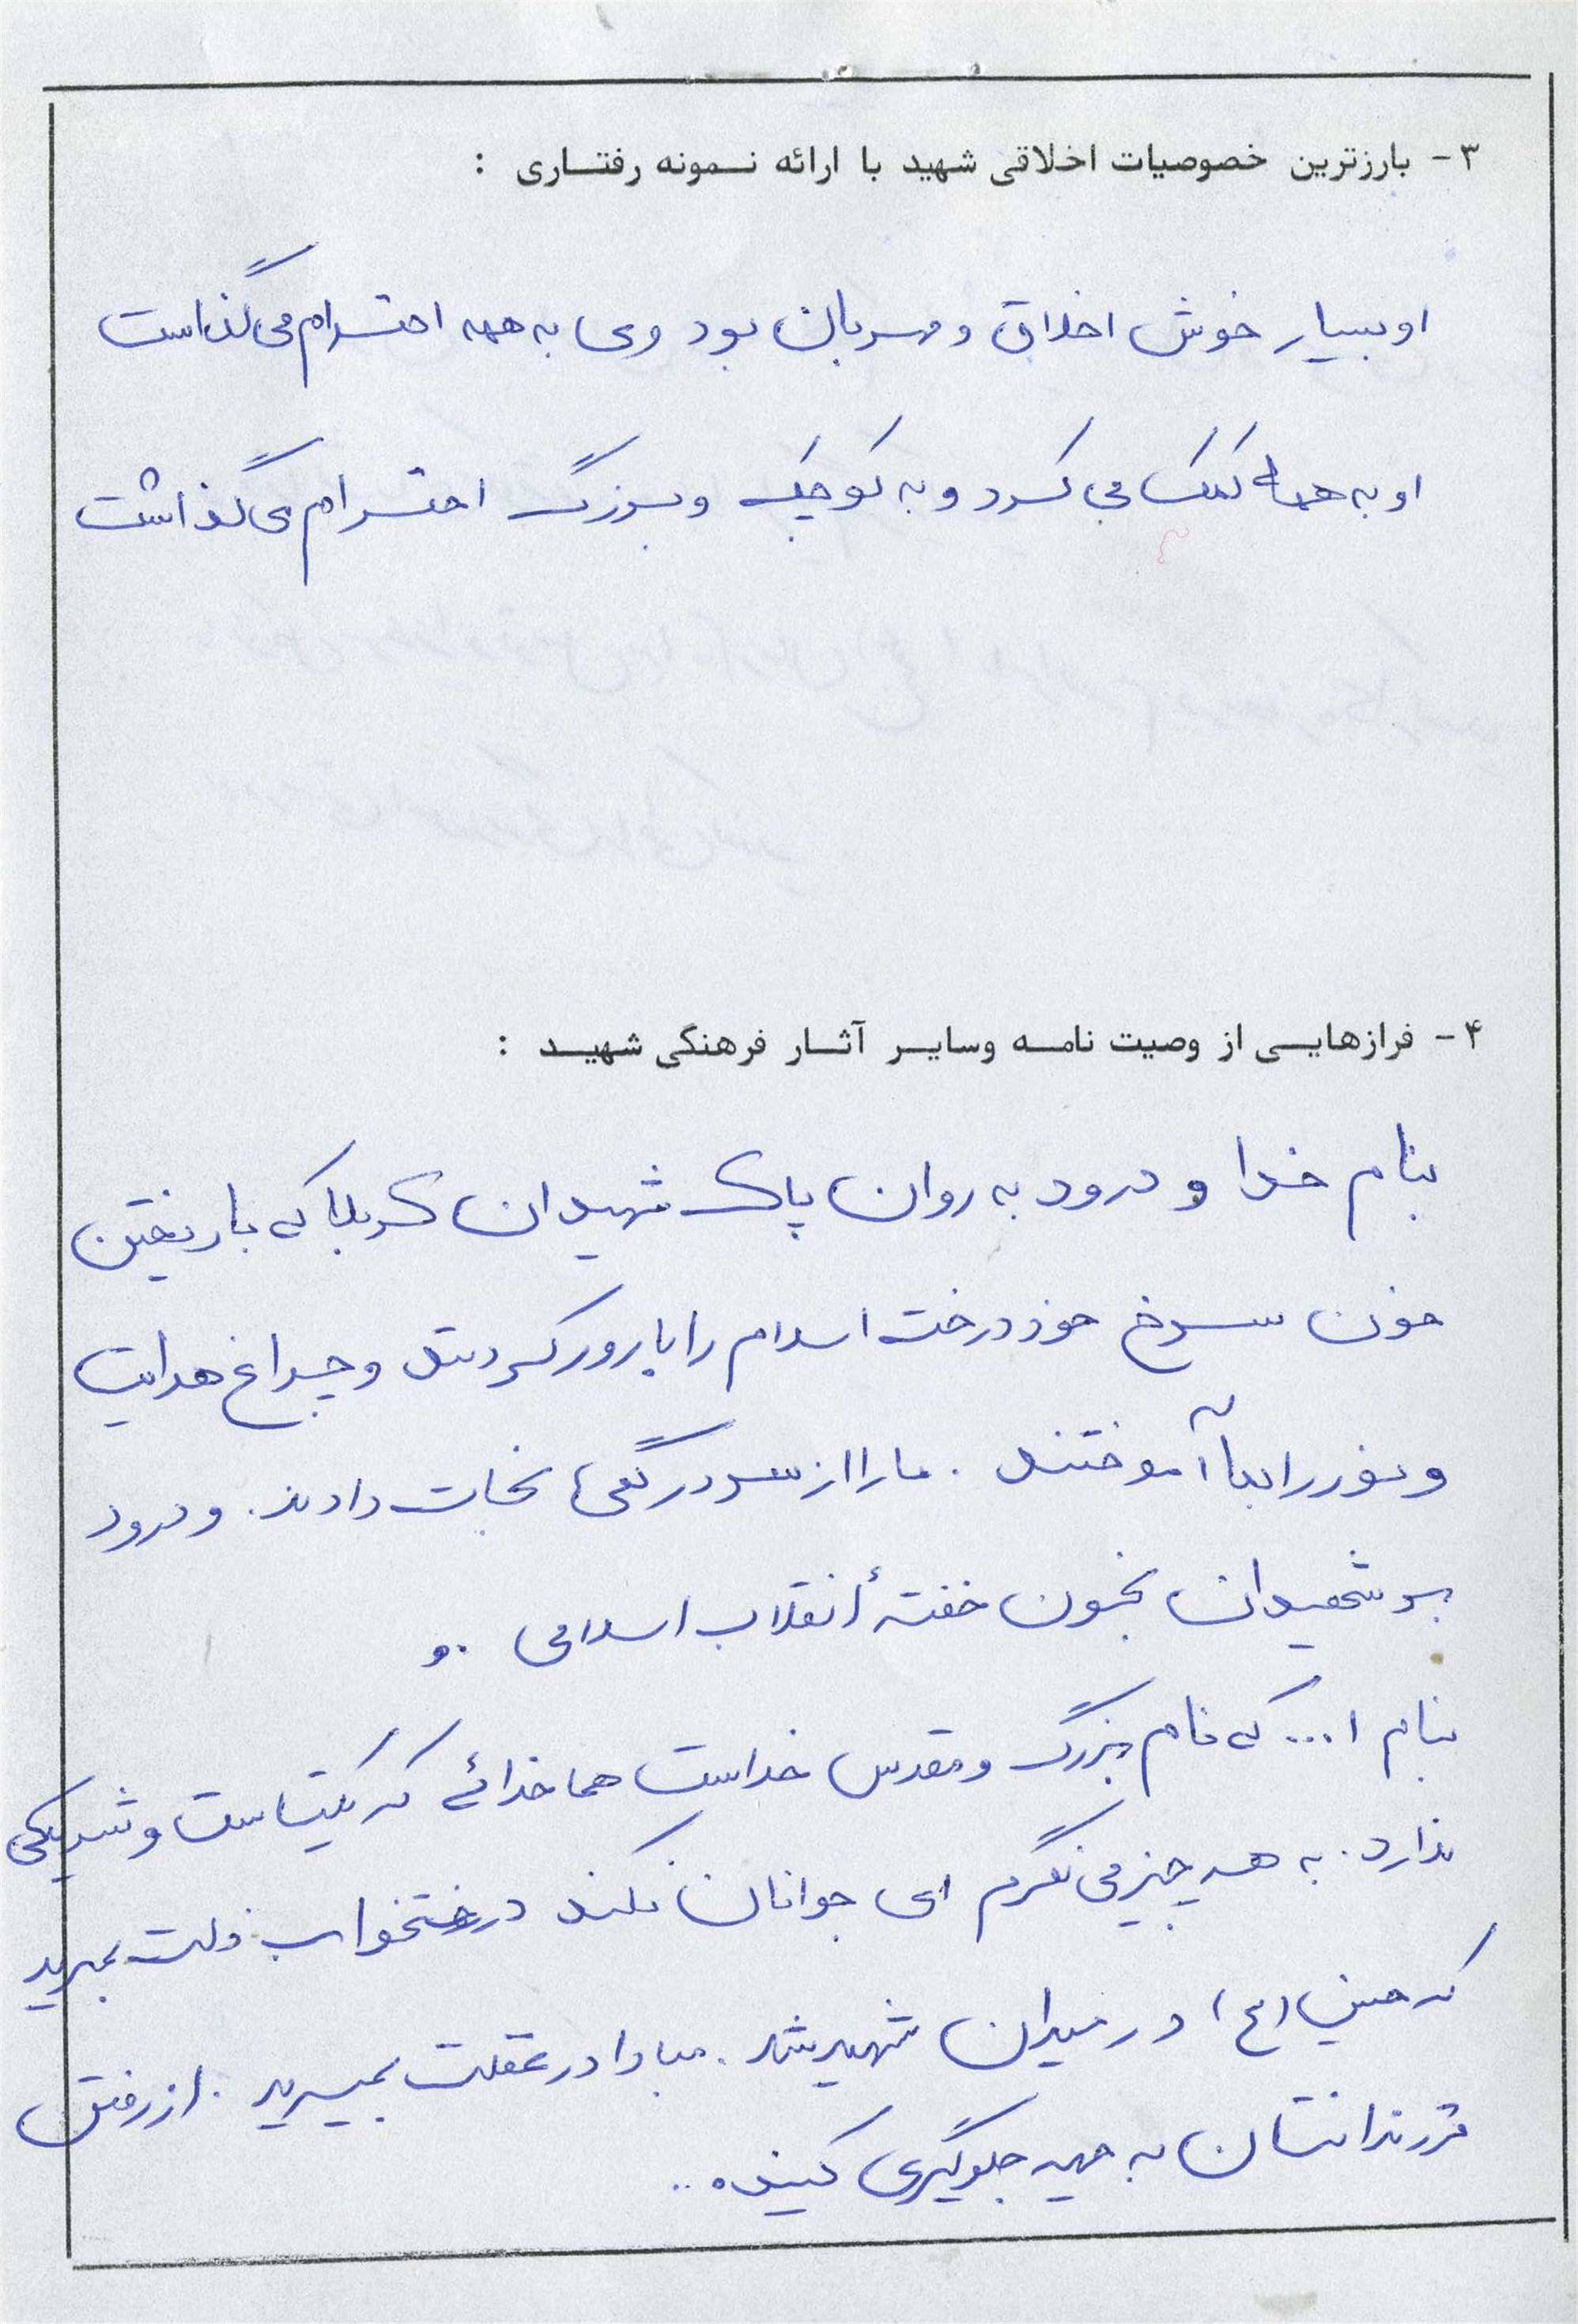 ۳- بارزترین خصوصیات اخلاقی شهید با ارائه نمونه رفتاری :
او بسیار خوش اخلاق و مهربان بود وی به همه احترام می گذاست
او به همه کمک می کرد و به کوچک و بزرگ احترام می گذاشت
۴- فرازهایی از وصیت نامه وسایر آثار فرهنگی شهید :
بنام خدا و درود به روان پاک شهیدان کربلا که با ریختن
خون سرخ خود درخت اسلام را بارور کردند و چراغ هدایت
و نور را بما آموختند . ما را از سردرگمی نجات دادند . و درود
بر شهیدان بخون خفتهٔ انقلاب اسلامی .و
بنام ا... که نام بزرگ و مقدس خداست هما خدائی که یکتاست و شریکی
ندارد . به هر چیز می نگرم ای جوانان نکند در رختخواب ذلت بمیرید
که حسین (ع) در میدان شهید شد . مبادا در غفلت بمیرید . از رفتن
فرزندانتان به جبهه جلوگیری کنید ..